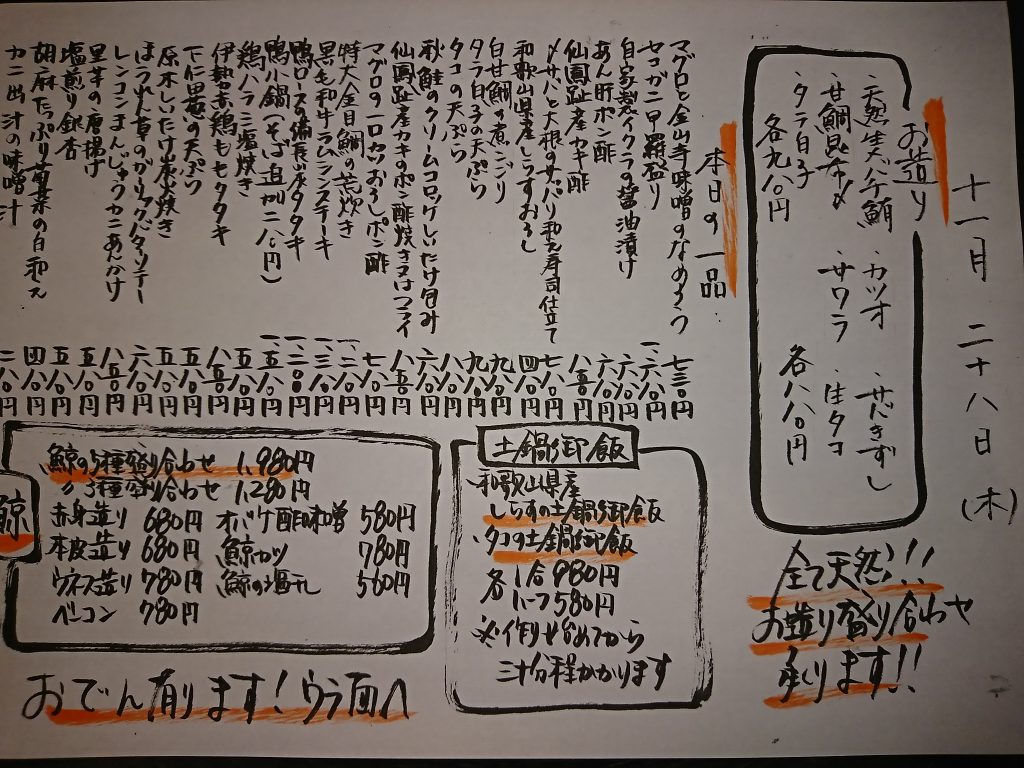 十一月 二十八日 (木)
お造り
・天然生バケ鮪 ・カツオ ・サバきずし
・甘鯛昆布〆 ・サワラ ・生タコ
・タラ白子
各九八〇円 各八八〇円
全て天然!!
お造り盛り合わせ
承ります!!
本日の一品
マグロと金山寺味噌のなめろう 七三〇円
セコガニ甲羅盛り 一、六八〇円
自家製イクラの醤油漬け 六八〇円
あん肝ポン酢 六八〇円
仙鳳趾産カキ酢 八五〇円
〆サバと大根のサッパリ和え寿司仕立て 七八〇円
和歌山県産しらすおろし 四八〇円
白甘鯛の煮こごり 九八〇円
タラ白子の天ぷら 九八〇円
タコの天ぷら 八八〇円
秋鮭のクリームコロッケしいたけ包み 六八〇円
仙鳳趾産カキのポン酢焼き又はフライ 八五〇円
マグロの一口カツおろしポン酢 七八〇円
特大金目鯛の荒炊き
黒毛和牛ラムシンステーキ
鴨ロースの備長炭タタキ
鴨小鍋(そば追加二八〇円)
鶏ハラミ塩焼き 五八〇円
伊勢赤鶏ももタタキ 八五〇円
下仁田葱の天ぷら 五八〇円
原木しいたけ炭火焼き 五八〇円
ほうれん草のガーリックバターソテー 六八〇円
レンコンまんじゅうカニあんかけ 八五〇円
里芋の唐揚げ 五八〇円
塩煎り銀杏 五八〇円
胡麻たっぷり菊菜の白和え 四八〇円
カニ出汁の味噌汁 二八〇円
土鍋御飯
・和歌山県産
しらすの土鍋御飯
・タコの土鍋御飯
各 1合 980円
ハーフ 580円
※作り始めてから
三十分程かかります
鯨
鯨の5種盛り合わせ 1,980円
〃 3種盛り合わせ 1,280円
赤身造り 680円 オバケ酢味噌 580円
本皮造り 680円 鯨カツ 780円
ウネス造り 780円 鯨の塩干し 560円
ベーコン 780円
おでん有ります!ウラ面へ